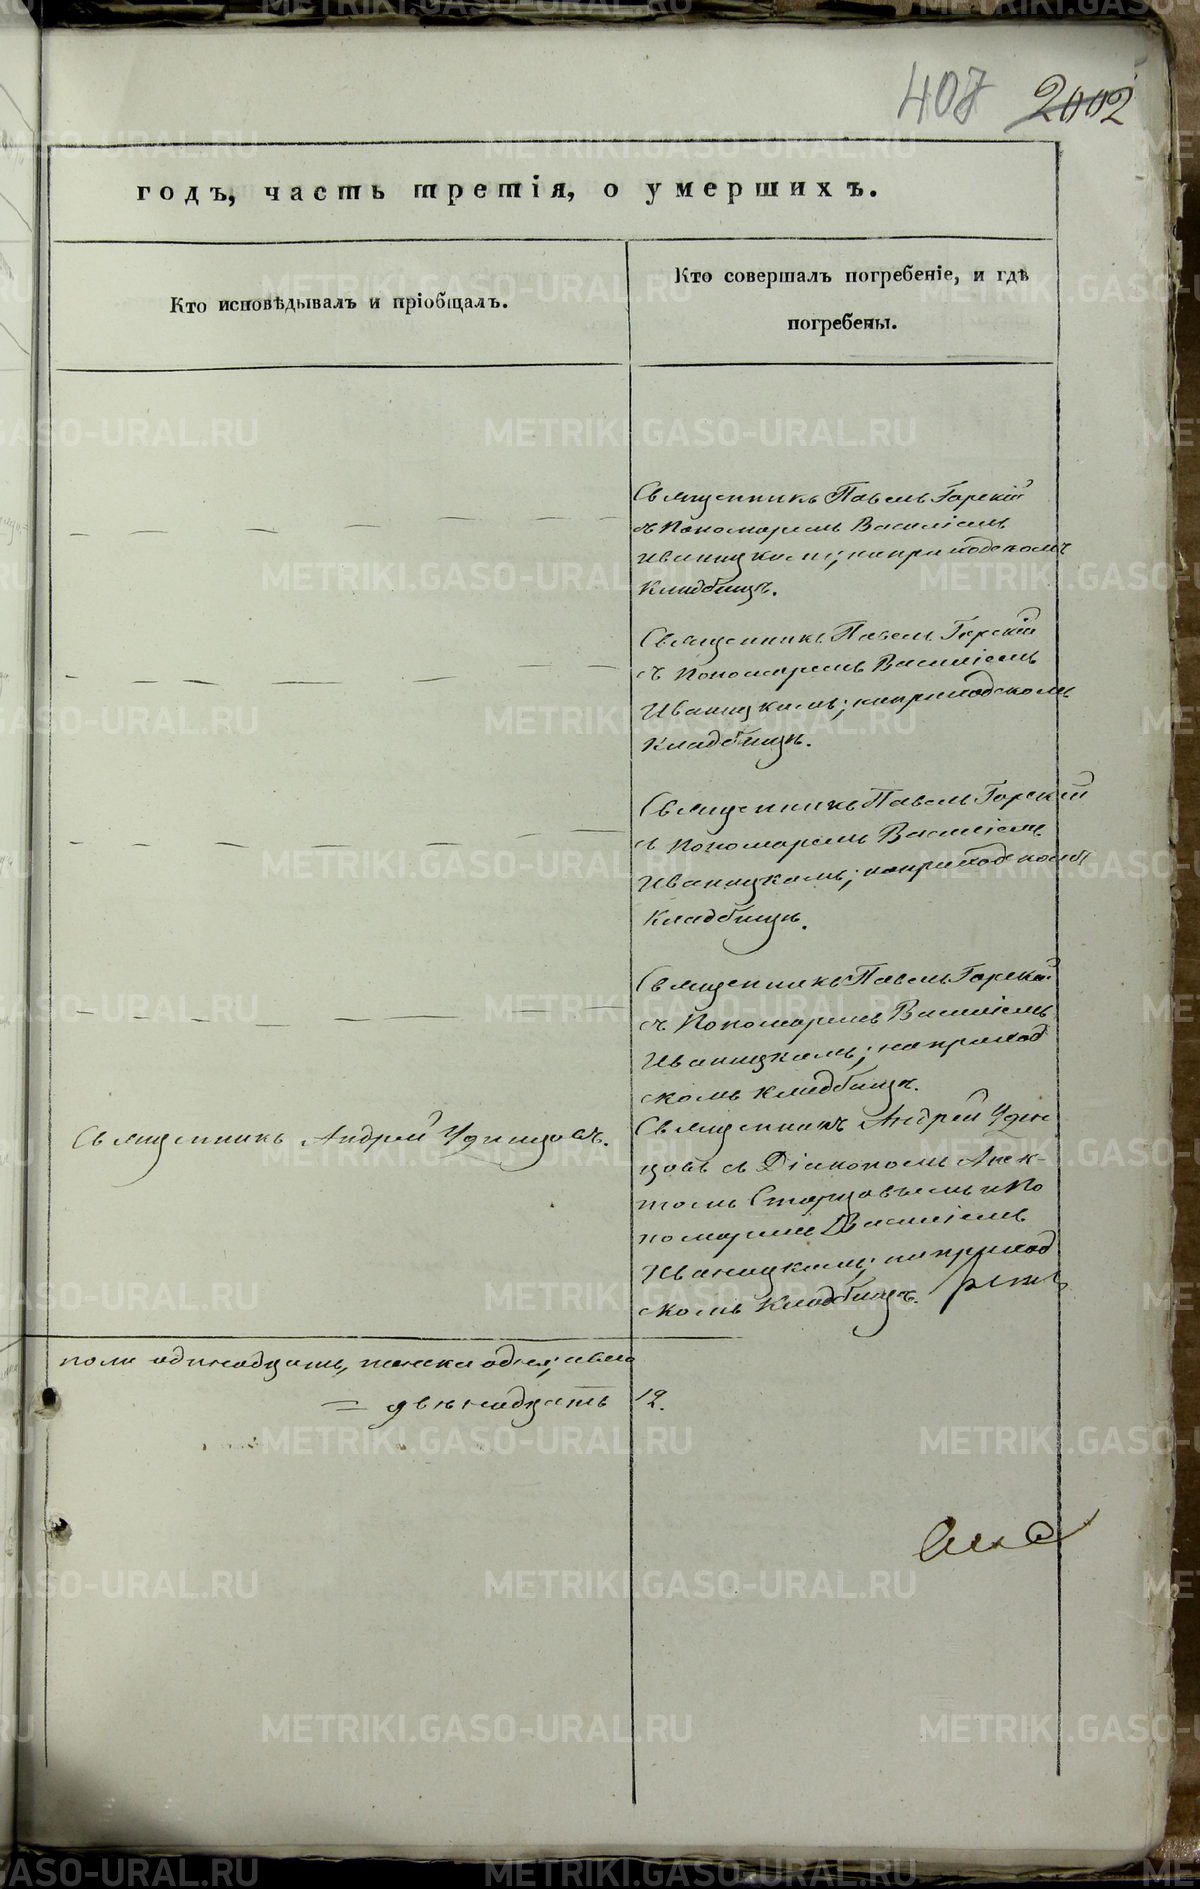 407 2002
годъ, часть третія, о умершихъ.
Кто исповѣдывалъ и пріобщалъ.
Кто совершалъ погребеніе, и гдѣ
погребены.
Священникъ Павелъ Горскій
съ Пономаремъ Василіемъ
Иваницкимъ; на приходскомъ
Кладбищѣ.
Священникъ Павелъ Горскій
съ Пономаремъ Василіемъ
Иваницкимъ; на приходскомъ
Кладбищѣ.
Священникъ Павелъ Горскій
съ Пономаремъ Василіемъ
Иваницкимъ; на приходскомъ
Кладбищѣ.
Священникъ Павелъ Горскій
съ Пономаремъ Василіемъ
Иваницкимъ; на приход
скомъ кладбищѣ.
Священникъ Андрей Удинцовъ.
Священникъ Андрей Удин
цовъ съ Діакономъ
Старцовымъ и По
номаремъ Василіемъ
Иваницкимъ; на приход
скомъ Кладбищѣ.
пола одинадцать, женска одна; обоего
= двѣнадцать 12.
METRIKI.GASO-URAL.RU